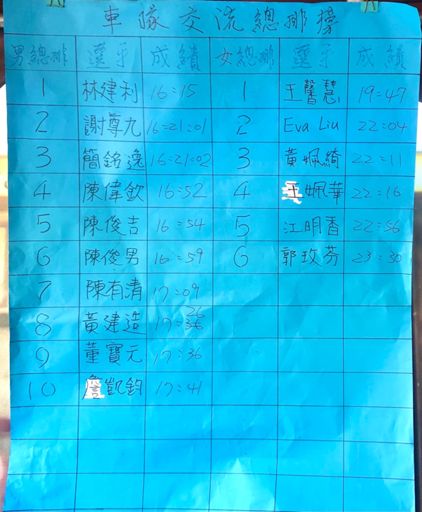 車隊交流總排檬
男總排 選手 成績 女總排 選手 成績
1 林建利 16:15 1 王馨慧 19:47
2 謝尊九 16:21:01 2 Eva Liu 22:04
3 簡銘逸 16:21:02 3 黃姵綺 22:11
4 陳偉欽 16:52 4 王姵華 22:16
5 陳俊吉 16:54 5 江明香 22:56
6 陳俊男 16:59 6 郭玫芬 23:30
7 陳有清 17:09
8 黃建造 17:26
9 董寶元 17:36
10 詹凱鈞 17:41